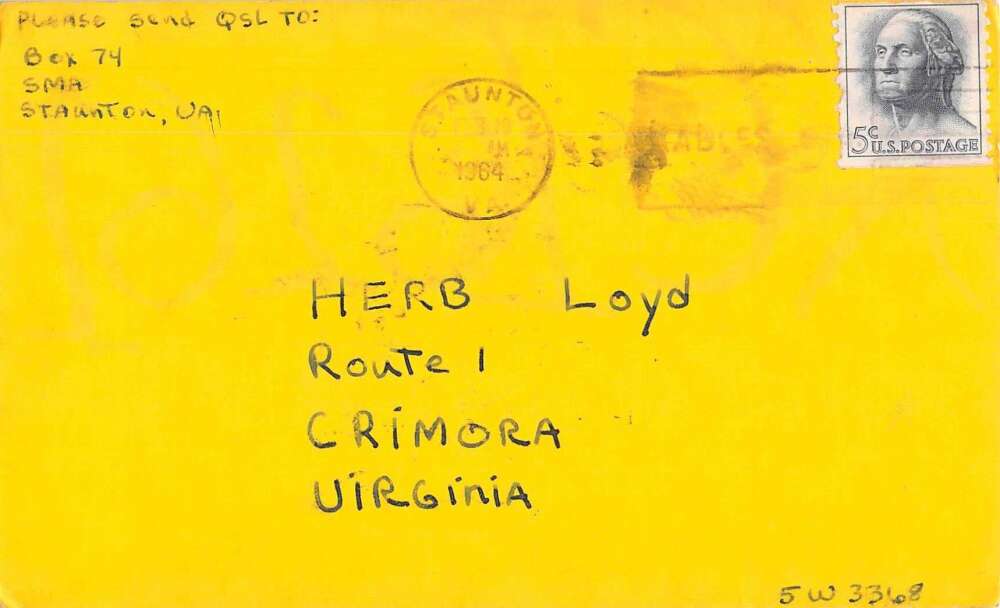 PLEASE Send QSL TO:
Box 74
SMA
STAUNTON, VA,
STAUNTON
AM
1964
VA.
5¢ U.S. POSTAGE
HERB Loyd
Route 1
CRiMORA
ViRGiniA
5W3368